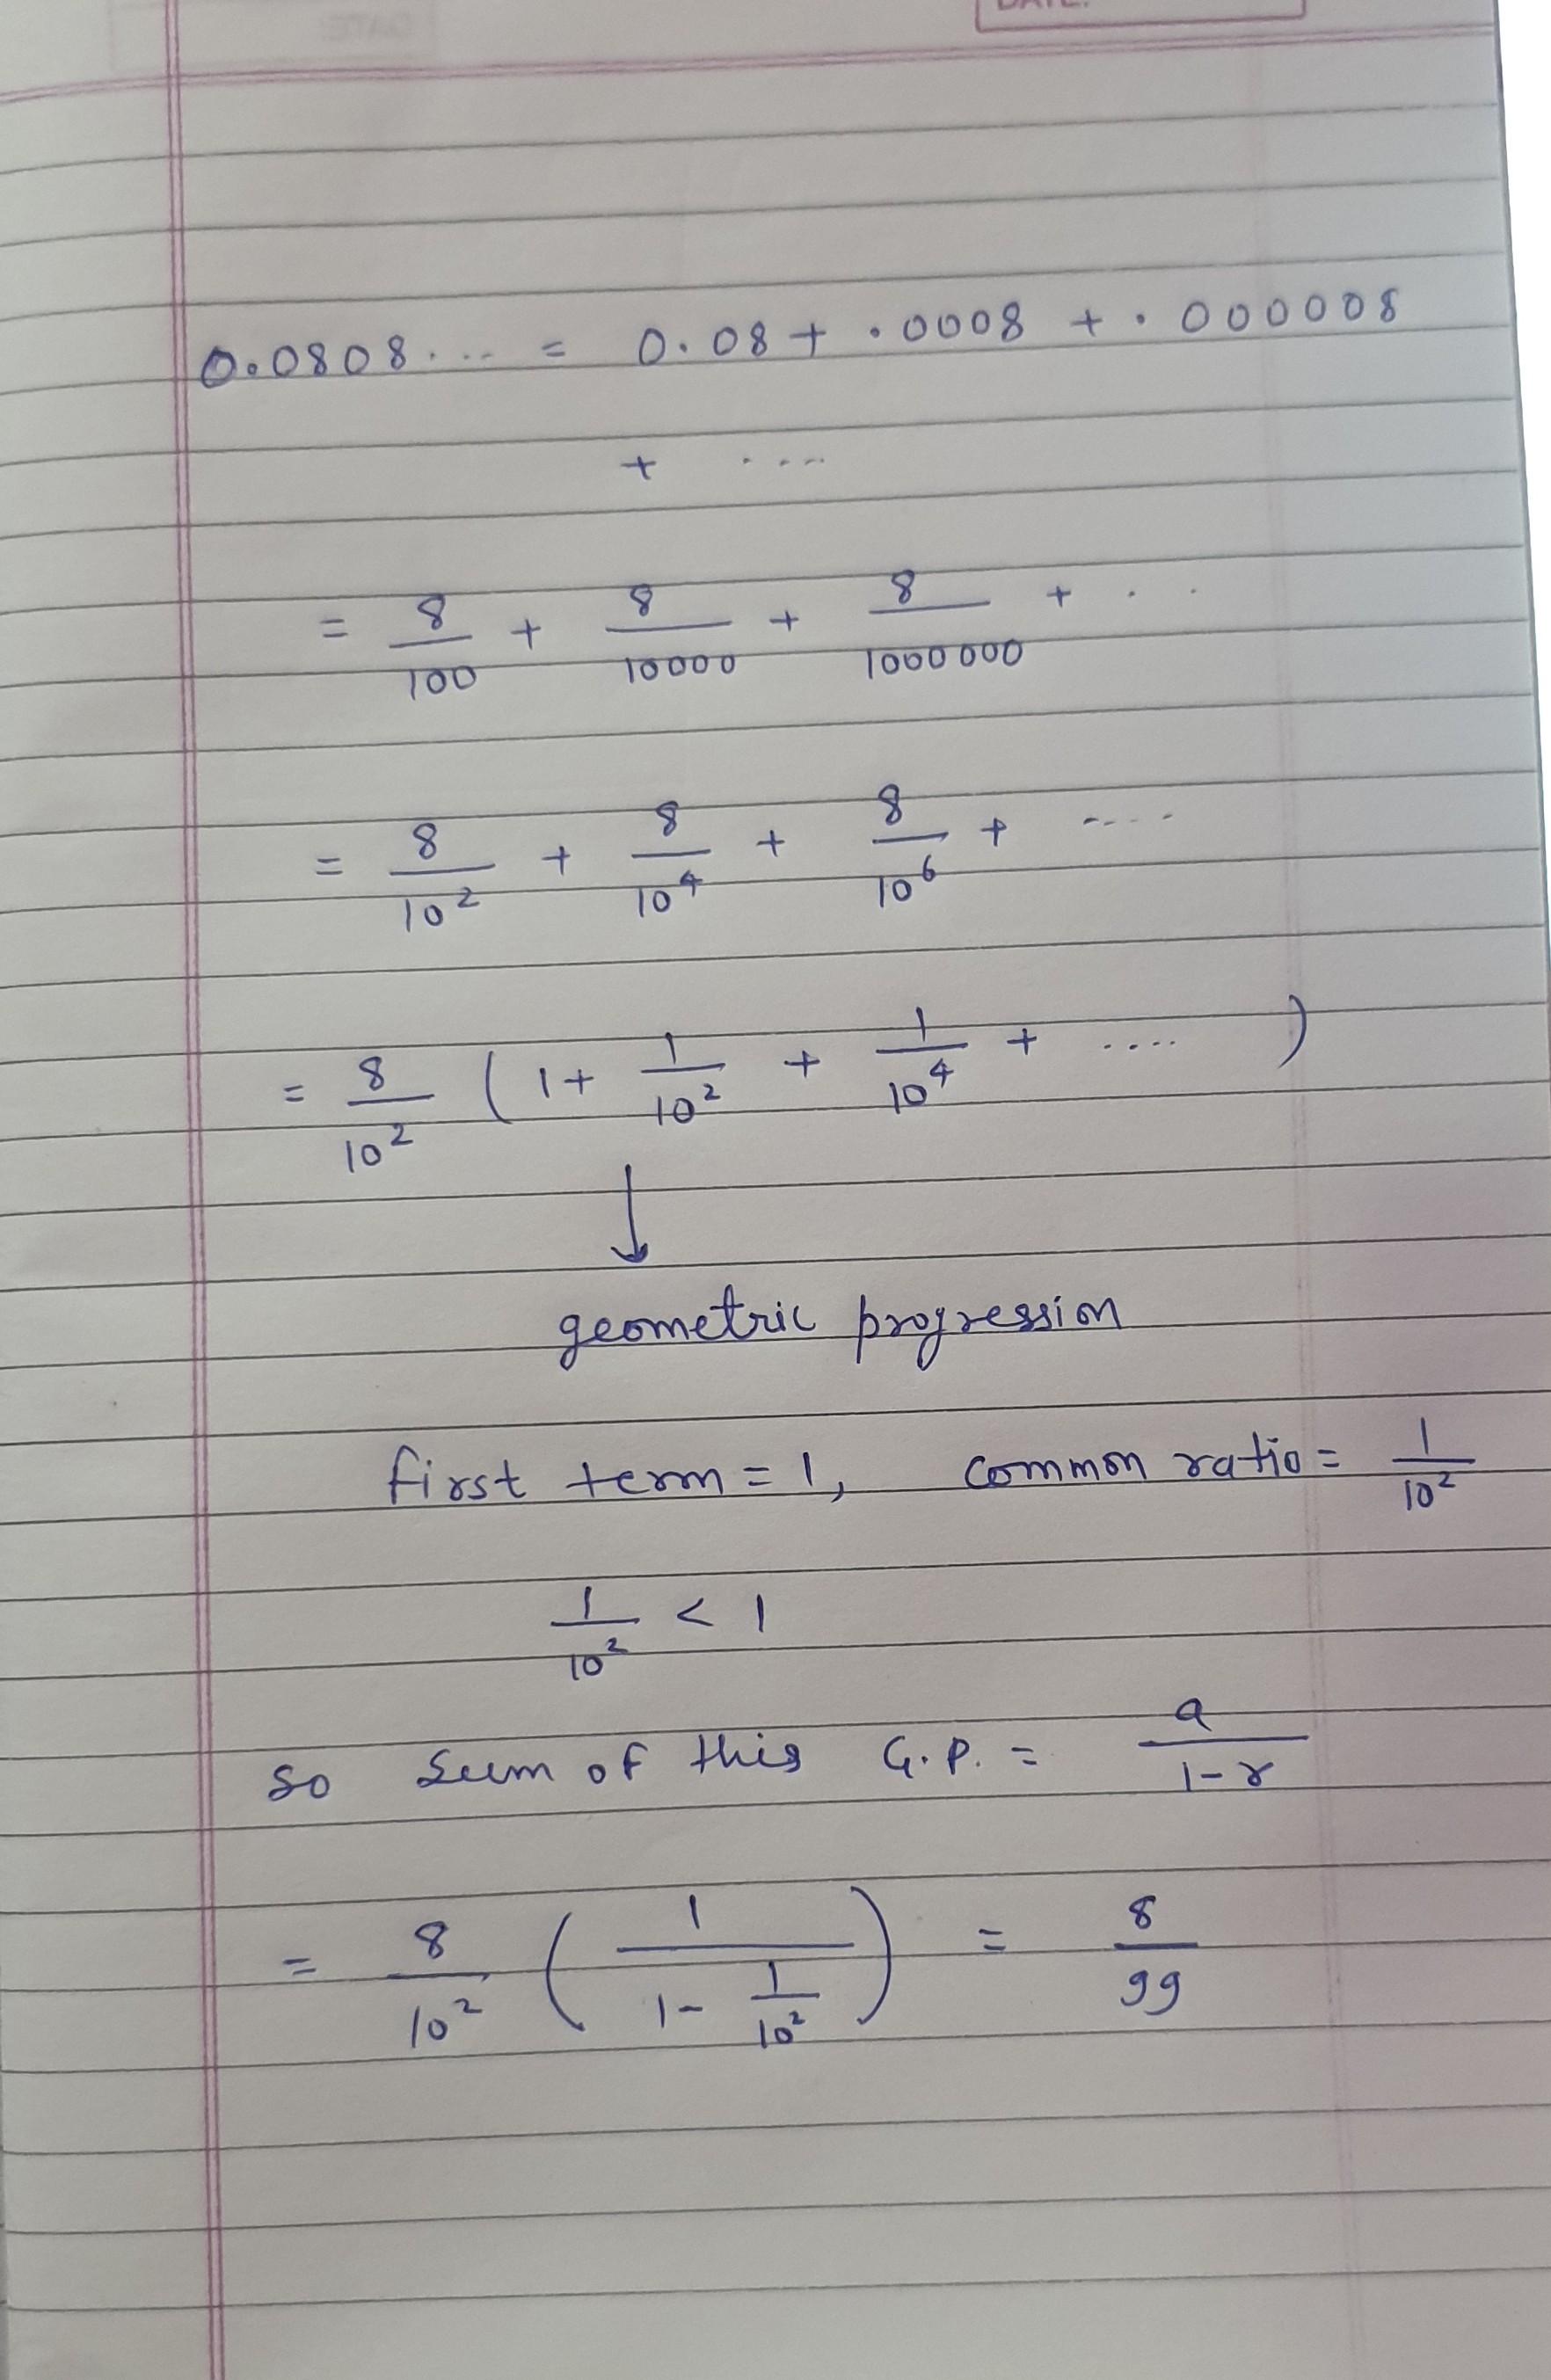 DATE:
0.0808.... = 0.08 + .0008 + .000008
+ ....
= 8/100 + 8/10000 + 8/1000000 + ..
= 8/10² + 8/10⁴ + 8/10⁶ + ....
= 8/10² ( 1 + 1/10² + 1/10⁴ + .... )
↓
geometric progression
first term = 1, common ratio = 1/10²
1/10² < 1
so sum of this G.P. = a/(1-r)
= 8/10² ( 1/(1 - 1/10²) ) = 8/99